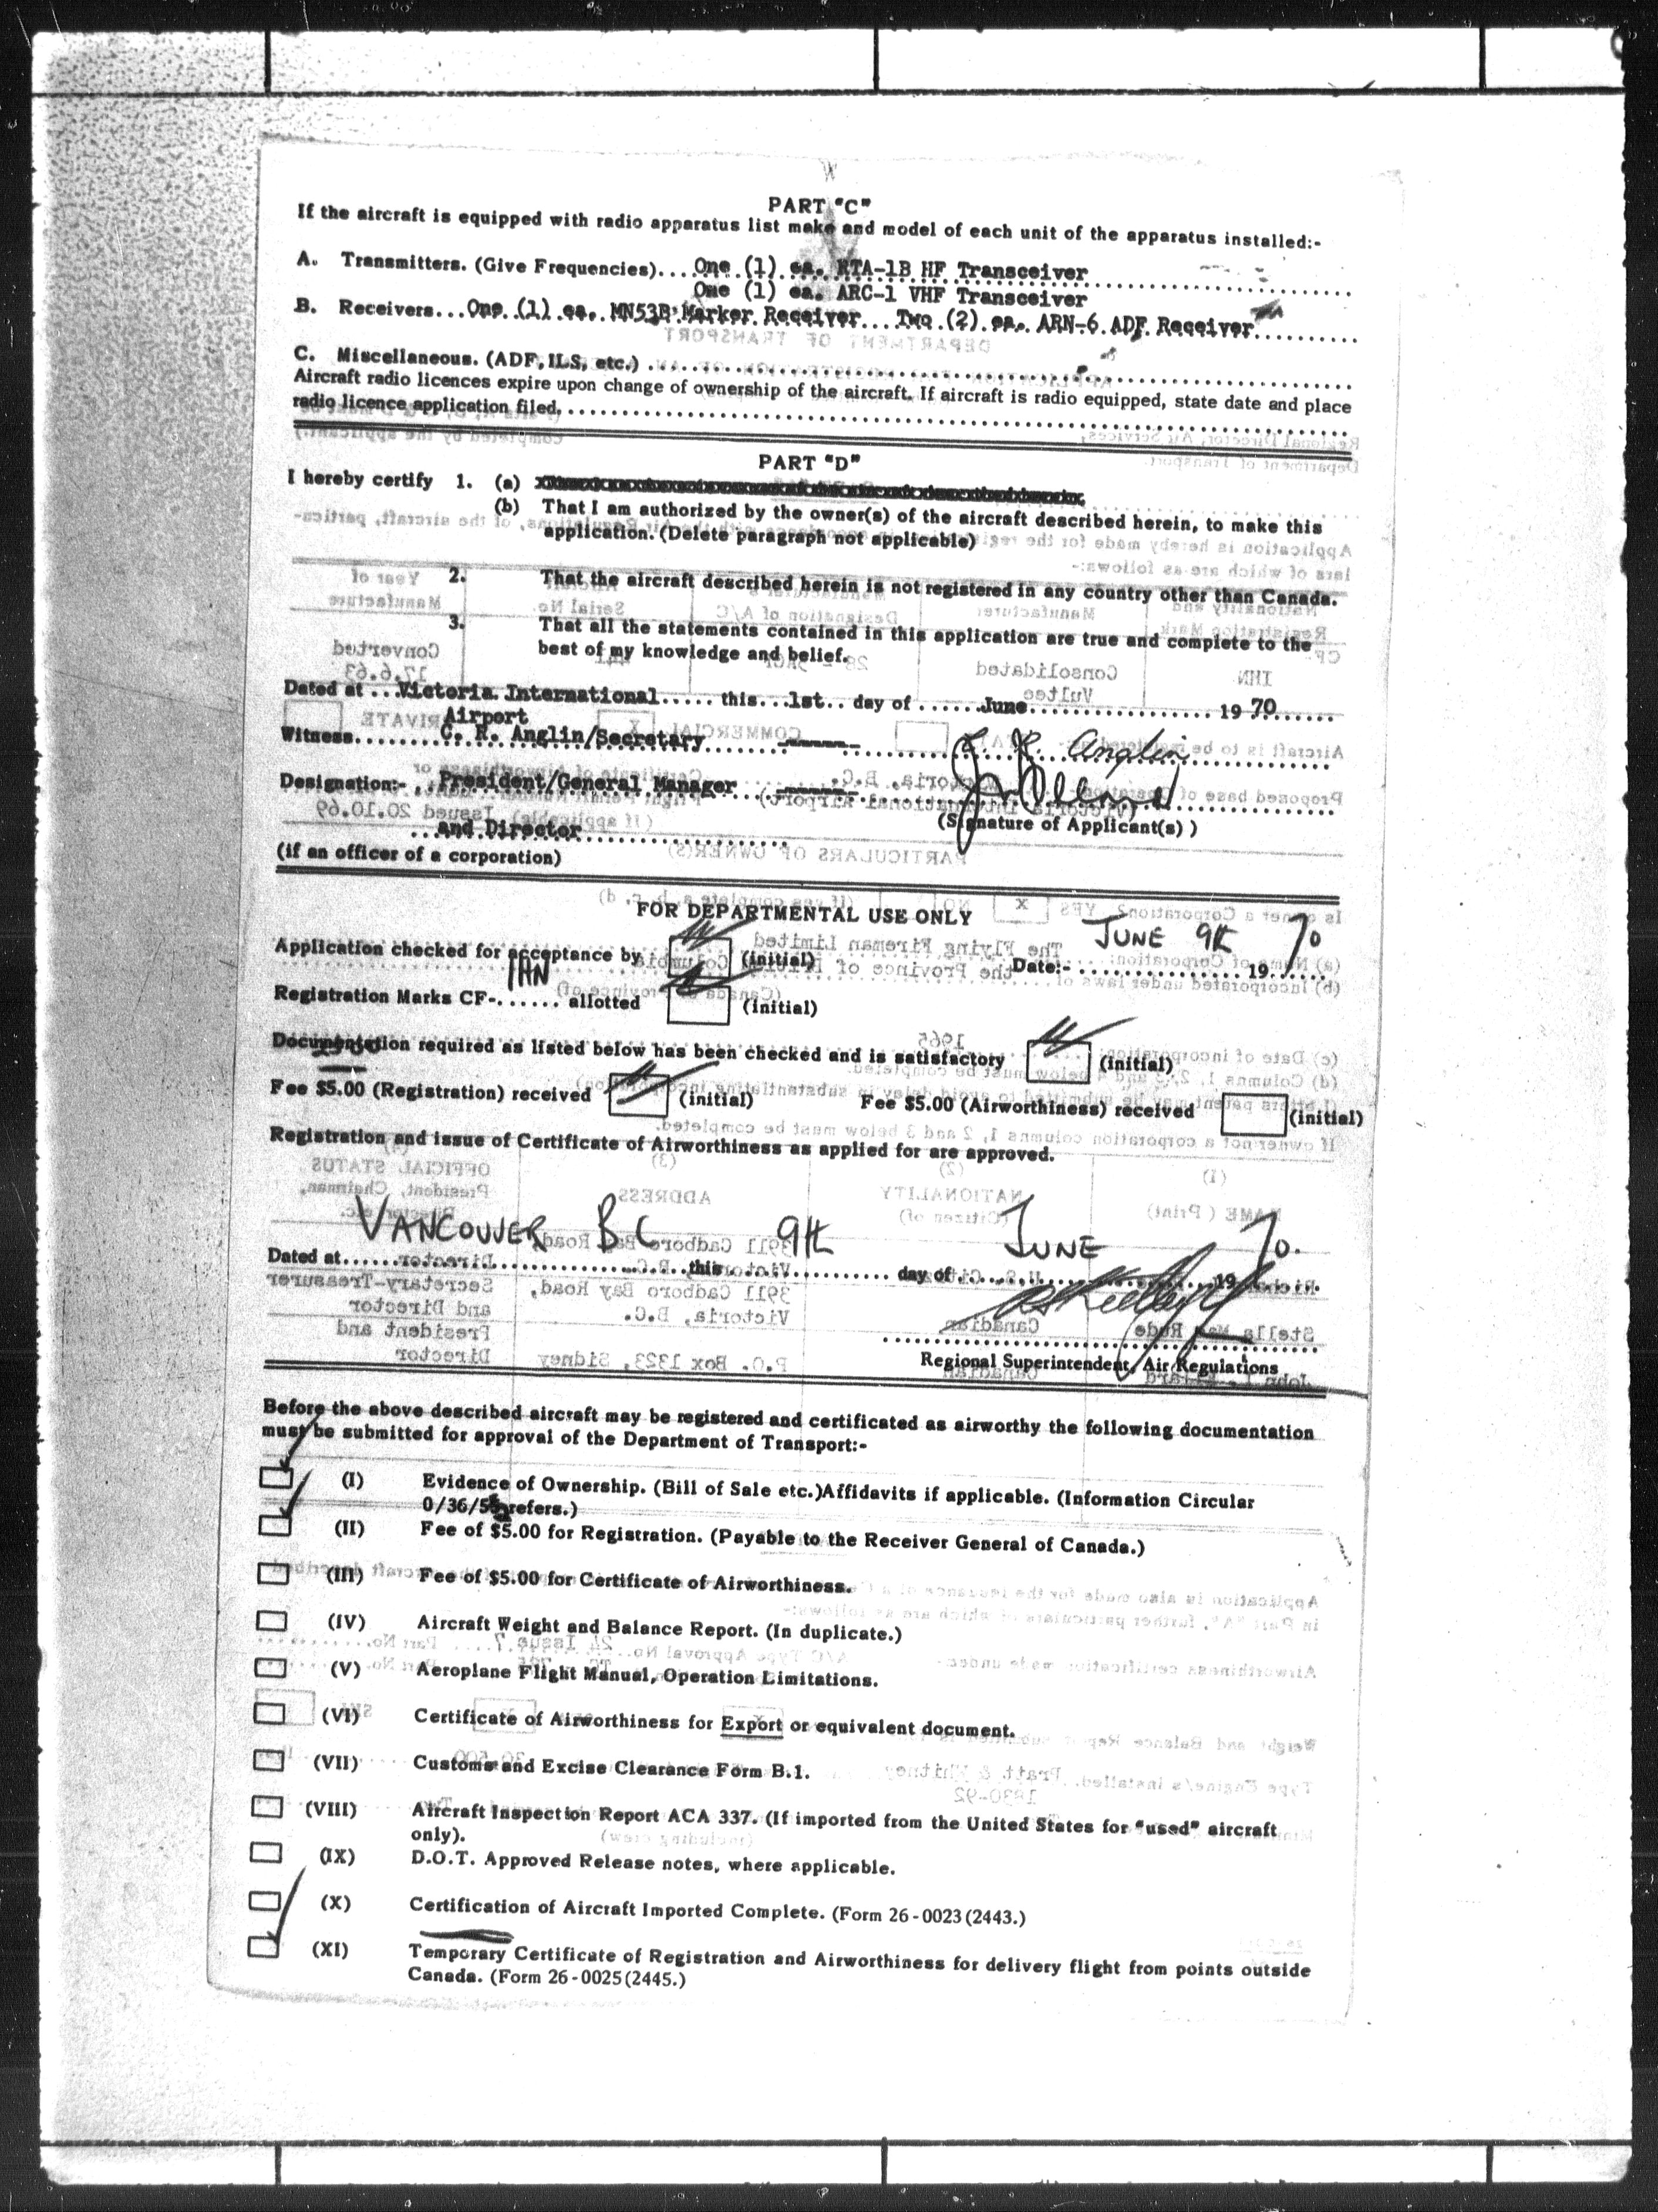 PART "C"
If the aircraft is equipped with radio apparatus list make and model of each unit of the apparatus installed:-
A. Transmitters. (Give Frequencies).... One (1) ea. RTA-1B HF Transceiver
One (1) ea. ARC-1 VHF Transceiver
B. Receivers... One (1) ea. MN53B Marker Receiver... Two (2) ea. ARN-6 ADF Receiver
C. Miscellaneous. (ADF, ILS, etc.)
Aircraft radio licences expire upon change of ownership of the aircraft. If aircraft is radio equipped, state date and place
radio licence application filed.
PART "D"
I hereby certify 1. (a)
(b) That I am authorized by the owner(s) of the aircraft described herein, to make this
application. (Delete paragraph not applicable)
2. That the aircraft described herein is not registered in any country other than Canada.
3. That all the statements contained in this application are true and complete to the
best of my knowledge and belief.
Dated at .. Victoria International ..... this... 1st.. day of ...... June ........ 19 70
Airport
Witness.... C. R. Anglin/Secretary C. R. Anglin
Designation:- President/General Manager
and Director
(Signature of Applicant(s) )
(if an officer of a corporation)
FOR DEPARTMENTAL USE ONLY
Application checked for acceptance by (initial) Date:- JUNE 9th 1970
Registration Marks CF- IHN allotted (initial)
Documentation required as listed below has been checked and is satisfactory (initial)
Fee $5.00 (Registration) received (initial) Fee $5.00 (Airworthiness) received (initial)
Registration and issue of Certificate of Airworthiness as applied for are approved.
Dated at VANCOUVER B C this 9th day of JUNE 1970.
Regional Superintendent, Air Regulations
Before the above described aircraft may be registered and certificated as airworthy the following documentation
must be submitted for approval of the Department of Transport:-
(I) Evidence of Ownership. (Bill of Sale etc.) Affidavits if applicable. (Information Circular
0/36/5 refers.)
(II) Fee of $5.00 for Registration. (Payable to the Receiver General of Canada.)
(III) Fee of $5.00 for Certificate of Airworthiness.
(IV) Aircraft Weight and Balance Report. (In duplicate.)
(V) Aeroplane Flight Manual, Operation Limitations.
(VI) Certificate of Airworthiness for Export or equivalent document.
(VII) Customs and Excise Clearance Form B.1.
(VIII) Aircraft Inspection Report ACA 337. (If imported from the United States for "used" aircraft
only).
(IX) D.O.T. Approved Release notes, where applicable.
(X) Certification of Aircraft Imported Complete. (Form 26-0023 (2443.)
(XI) Temporary Certificate of Registration and Airworthiness for delivery flight from points outside
Canada. (Form 26-0025 (2445.)